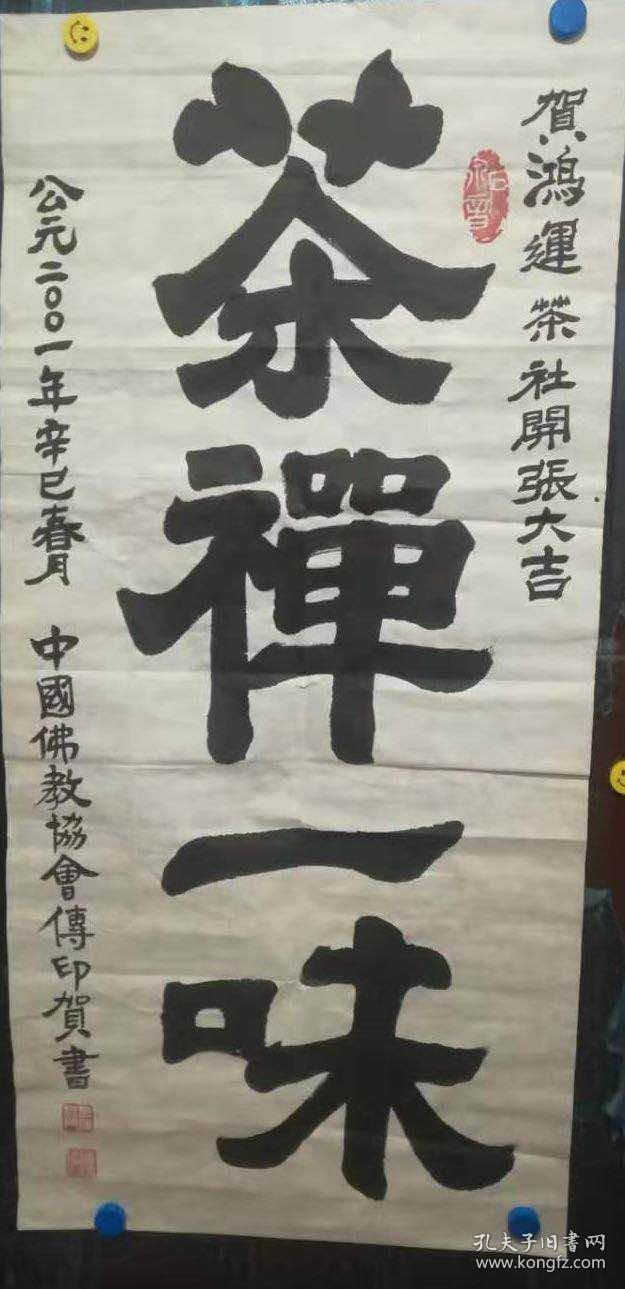 賀鴻運茶社開張大吉
茶禪一味
公元二〇〇一年辛巳春月 中國佛教協會傳印賀書
孔夫子旧書网
www.kongfz.com